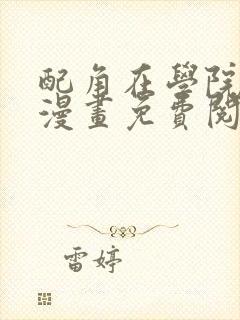 配角在學院
漫畫免費閱
雷婷